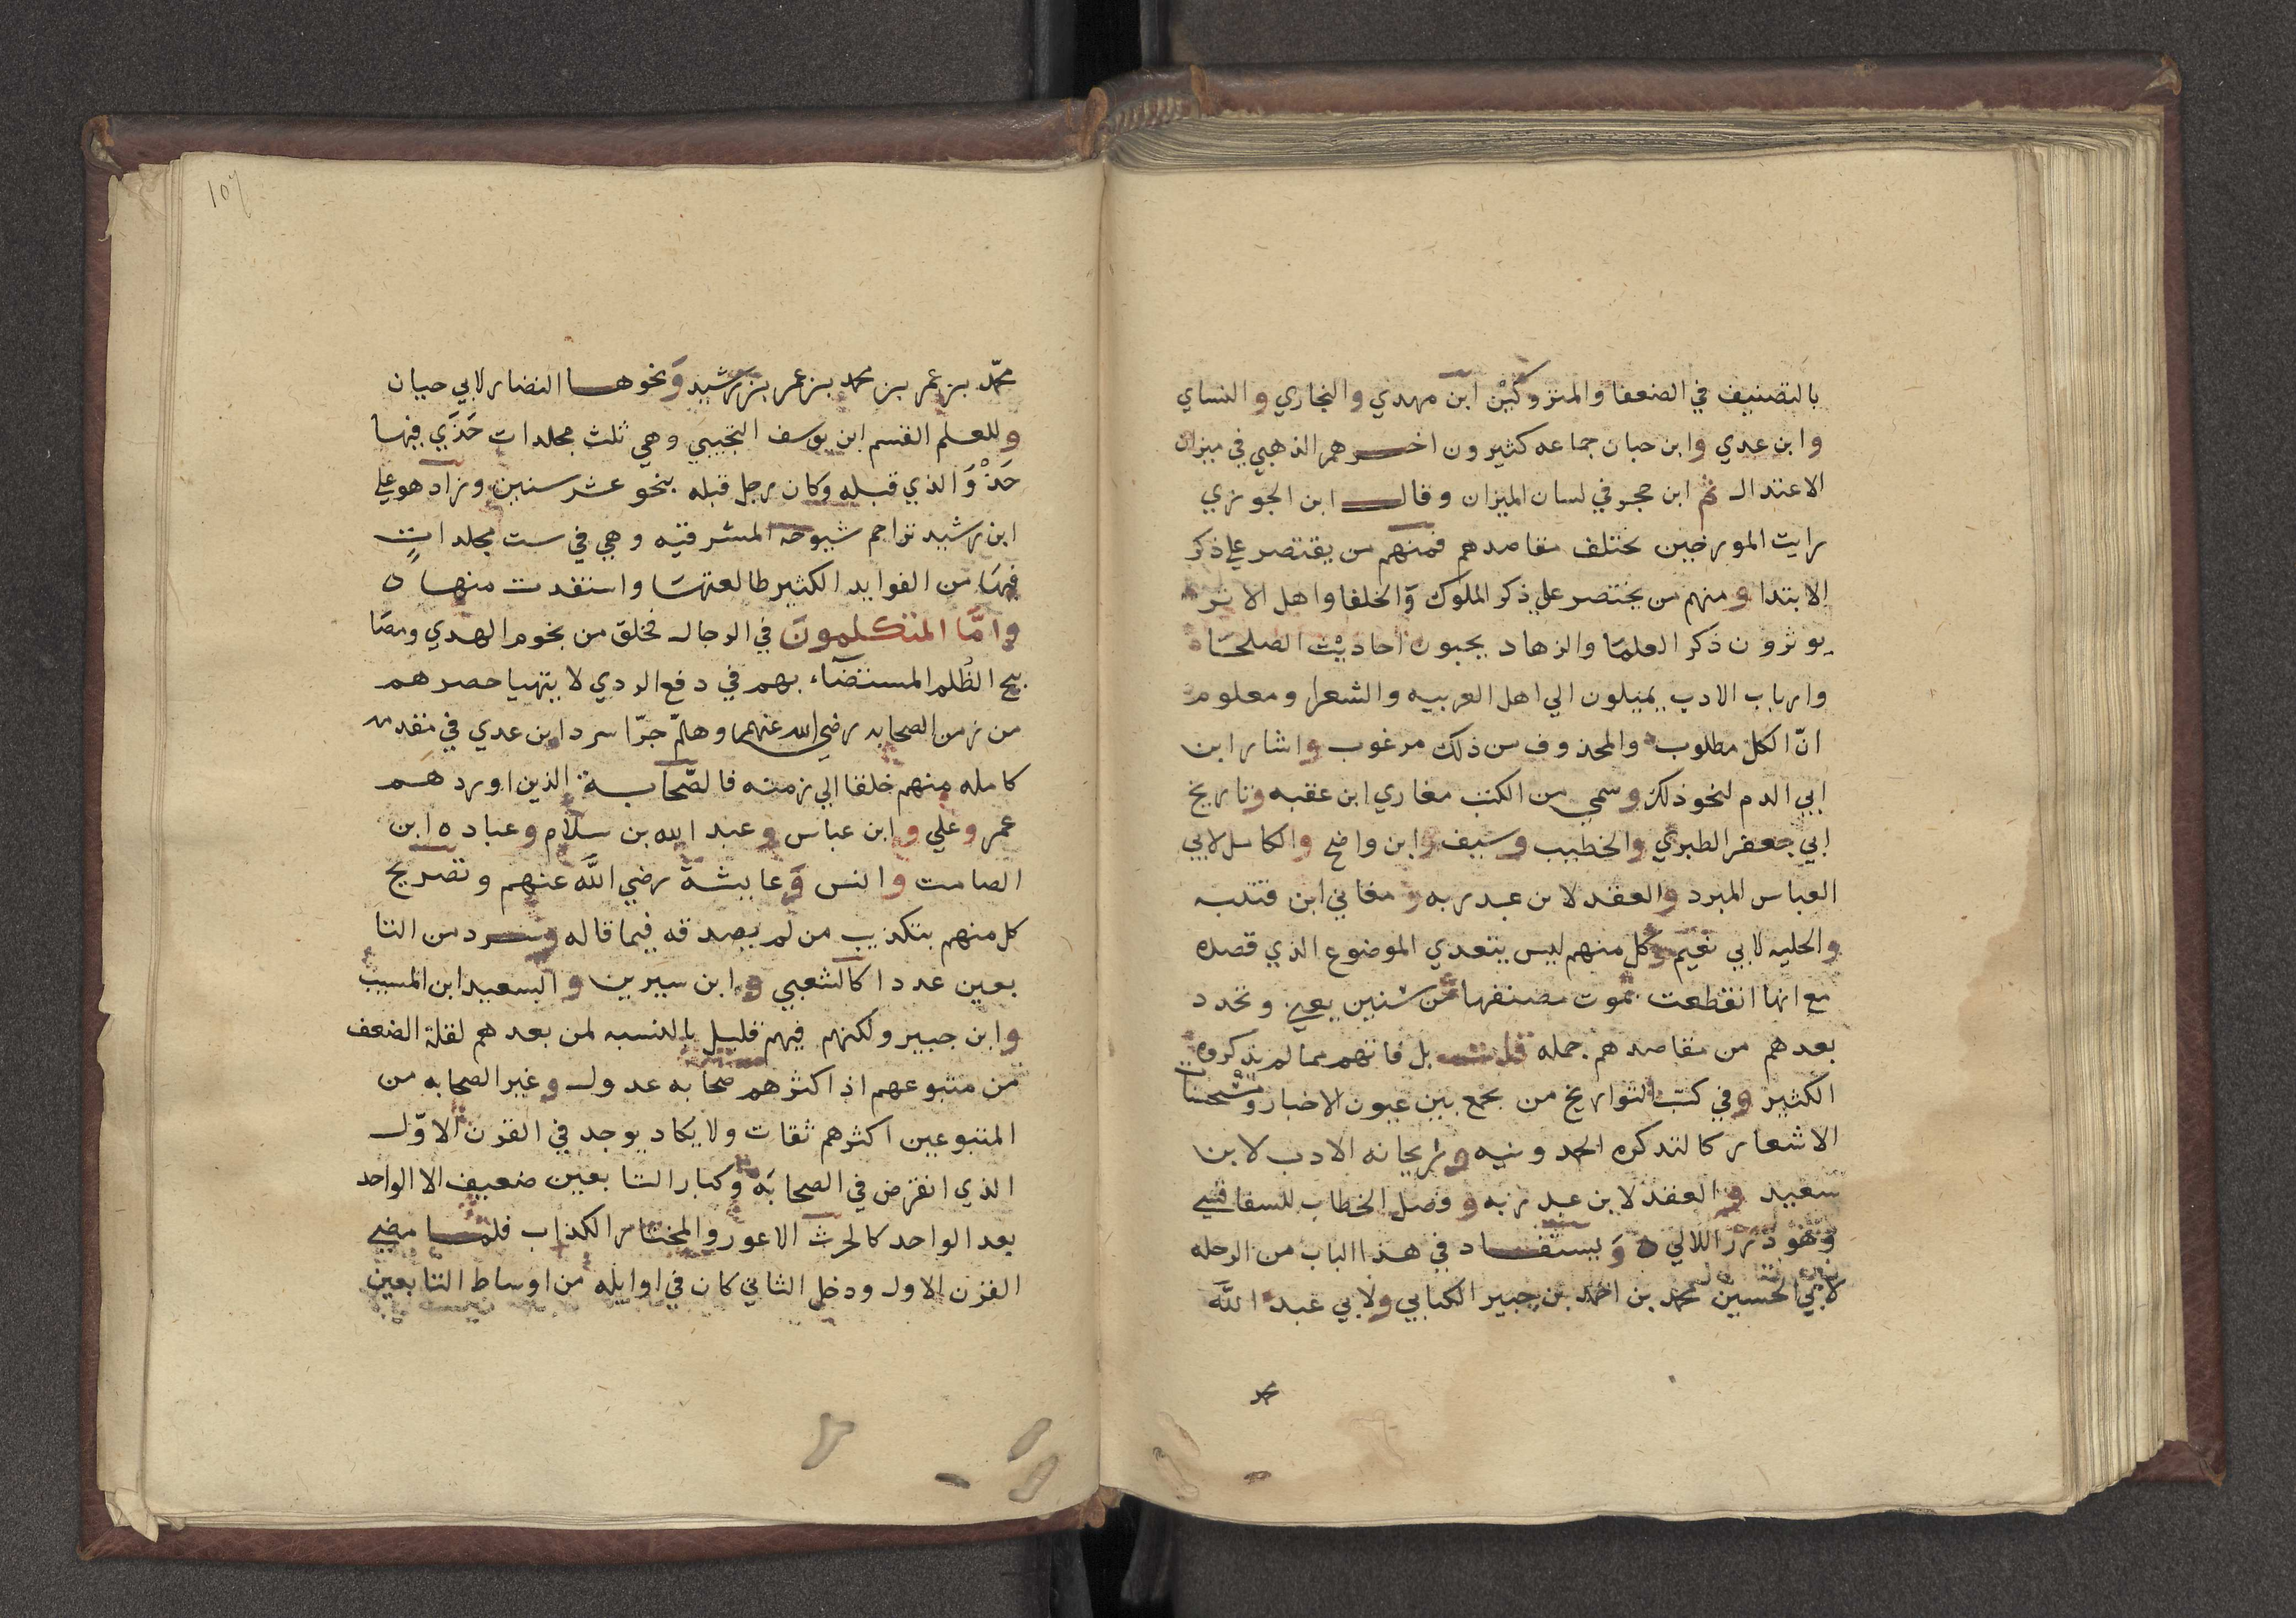 بالتصنيف في الضعفا والمتروكين ابن مهدي والبخاري والنساي
وابن عدي وابن حبان جماعه كثيرون اخرهم الذهبي في ميزان
الاعتدال ثم ابن حجر في لسان الميزان وقال ابن الجوزي
رايت المورخين تختلف مقاصدهم فمنهم من يقتصر علي ذكر
الابتدا ومنهم من يختصر علي ذكر الملوك والخلفا واهل الاثر
يوثرون ذكر العلما والزهاد يحبون احاديث الصلحا
وارباب الادب يميلون الي اهل العربيه والشعرا ومعلوم
انّ الكل مطلوب والمحذوف من ذلك مرغوب واشار ابن
ابي الدم لنحو ذلك وسمي من الكتب مغازي ابن عقبه وتاريخ
ابي جعفر الطبري والخطيب وسيف وابن واضح والكامل لابي
العباس المبرد والعقد لابن عبد ربه ومعاني ابن قتيبه
والحليه لابي نعيم وكل منهم ليس يتعدي الموضوع الذي قصده
مع انها انقطعت بموت مصنفها من سنين يعني وتجدد
بعدهم من مقاصدهم جمله قلت بل فاتهم مما لم يذكروه
الكثير وفي كتب التواريخ من يجمع بين عيون الاخبار ومستحسنات
الاشعار كالتذكره الحمدونيه وريحانه الادب لابن
سعيد والعقد لابن عبد ربه وفصل الخطاب للسفاقسي
وهو درر اللالي ه ويستفاد في هذا الباب من الرحله
لابي الحسين محمد بن احمد بن جبير الكناني ولابي عبد الله
محمد
107
محمّد بن عمر بن محمد بن عمر بن رشيد ونحوها النضار لابي حيان
وللعلم القسم ابن يوسف التجيبي وهي ثلث مجلدات حَذَي فيها
حَذْوَ الذي قبله وكان رحل قبله بنحو عشر سنين وزاد هو علي
ابن رشيد تراجم شيوخه المشرقيه وهي في ست مجلدات
فيها من الفوايد الكثير طالعتها واستفدت منها ه
وامّا المتكلمون في الرجال فخلق من نجوم الهدي ومصا
بيح الظُلم المستضاء بهم في دفع الردي لا يتهيا حصرهم
من زمن الصحابه رضي الله عنهم وهلمّ جرّا سرد ابن عدي في مقدمه
كامله منهم خلقا الي زمنه فالصّحابة الذين اوردهم
عمر وعلي وابن عباس وعبد الله بن سلام وعباده ابن
الصامت وانس وعايشة رضي الله عنهم وتصريح
كل منهم بتكذيب من لم يصدقه فيما قاله وسرد من التا
بعين عددا كالشعبي وابن سيرين والسعيد ابن المسيب
وابن جبير ولكنهم فيهم قليل بالنسبه لمن بعدهم لقلة الضعف
من متبوعهم اذ اكثرهم صحابه عدول وغير الصحابه من
المتبوعين اكثرهم ثقات ولا يكاد يوجد في القرن الاوّل
الذي انقرض في الصحابَه وكبار التابعين ضعيف الا الواحد
بعد الواحد كالحرث الاعور والمختار الكذاب فلما مضي
القرن الاول ودخل الثاني كان في اوايله من اوساط التابعين